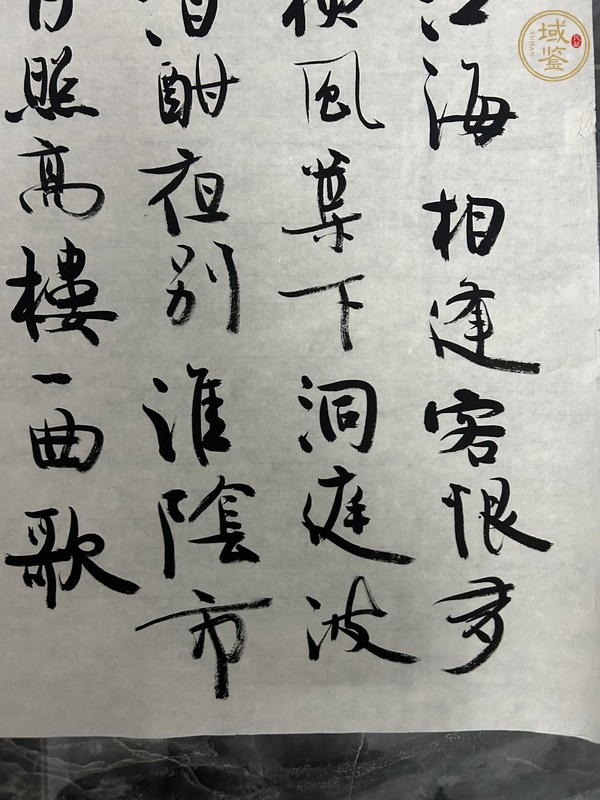 江海相逢客恨多
風葉下洞庭波
酒酣夜别淮陰市
月照高樓一曲歌
域鉴